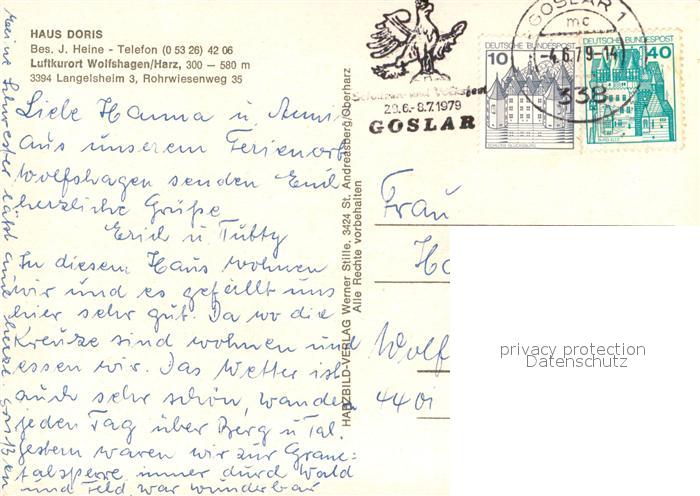 HAUS DORIS
Bes. J. Heine - Telefon (0 53 26) 42 06
Luftkurort Wolfshagen/Harz, 300 — 580 m
3394 Langelsheim 3, Rohrwiesenweg 35
Liebe Hanna u. Anni
aus unserem Ferienort
Wolfshagen senden Euch
herzliche Grüße
Erich u. Tutty
In diesem Haus wohnen
wir und es gefällt uns
hier sehr gut. Da wo die
Kreuze sind wohnen und
essen wir. Das Wetter ist
auch sehr schön, wandern
jeden Tag über Berg u Tal.
Gestern waren wir zur Grane-
talsperre immer durch Wald
und Feld, war wunderbar
Meine Schwester läßt auch herzl. grüßen
HARZBILD-VERLAG Werner Stille, 3424 St. Andreasberg/Oberharz
Alle Rechte vorbehalten
Schützen- und Volksfest
29.6.- 8.7.1979
GOSLAR
GOSLAR 1
mc
-4.6.79-14
338
10
DEUTSCHE BUNDESPOST
SCHLOSS GLÜCKSBURG
40
DEUTSCHE BUNDESPOST
BURG ELTZ
Frau
Wolf
4401
privacy protection
Datenschutz